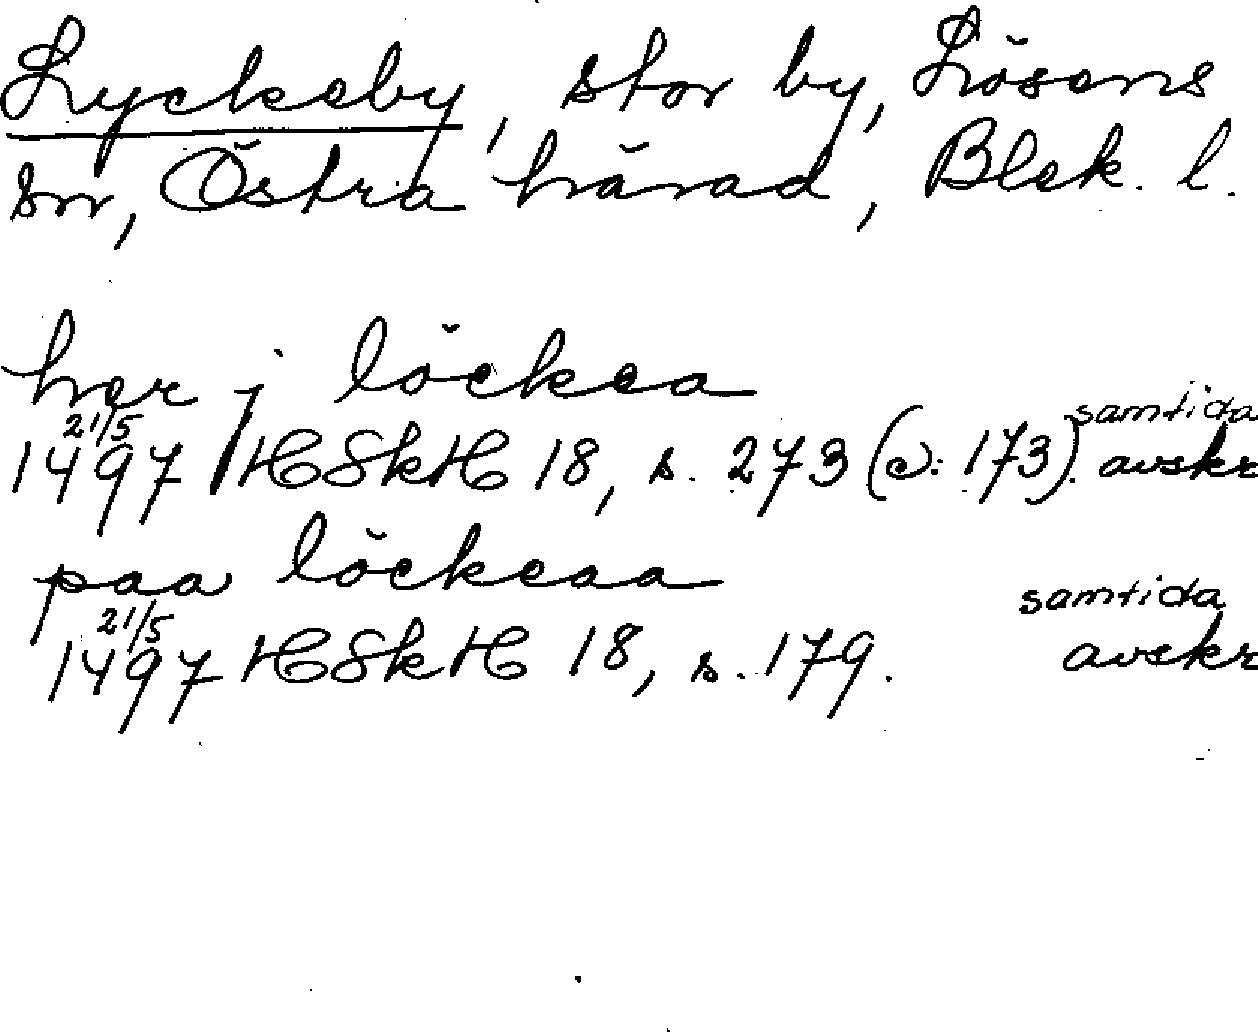 Lyckeby, stor by, Lösens
sn, Östra härad, Blek. l.
her j löckea
samtida
1497 21/5 HSkH 18, s. 273 (ɔ: 173). avskr
paa löckeaa
samtida
1497 21/5 HSkH 18, s. 179. avskr